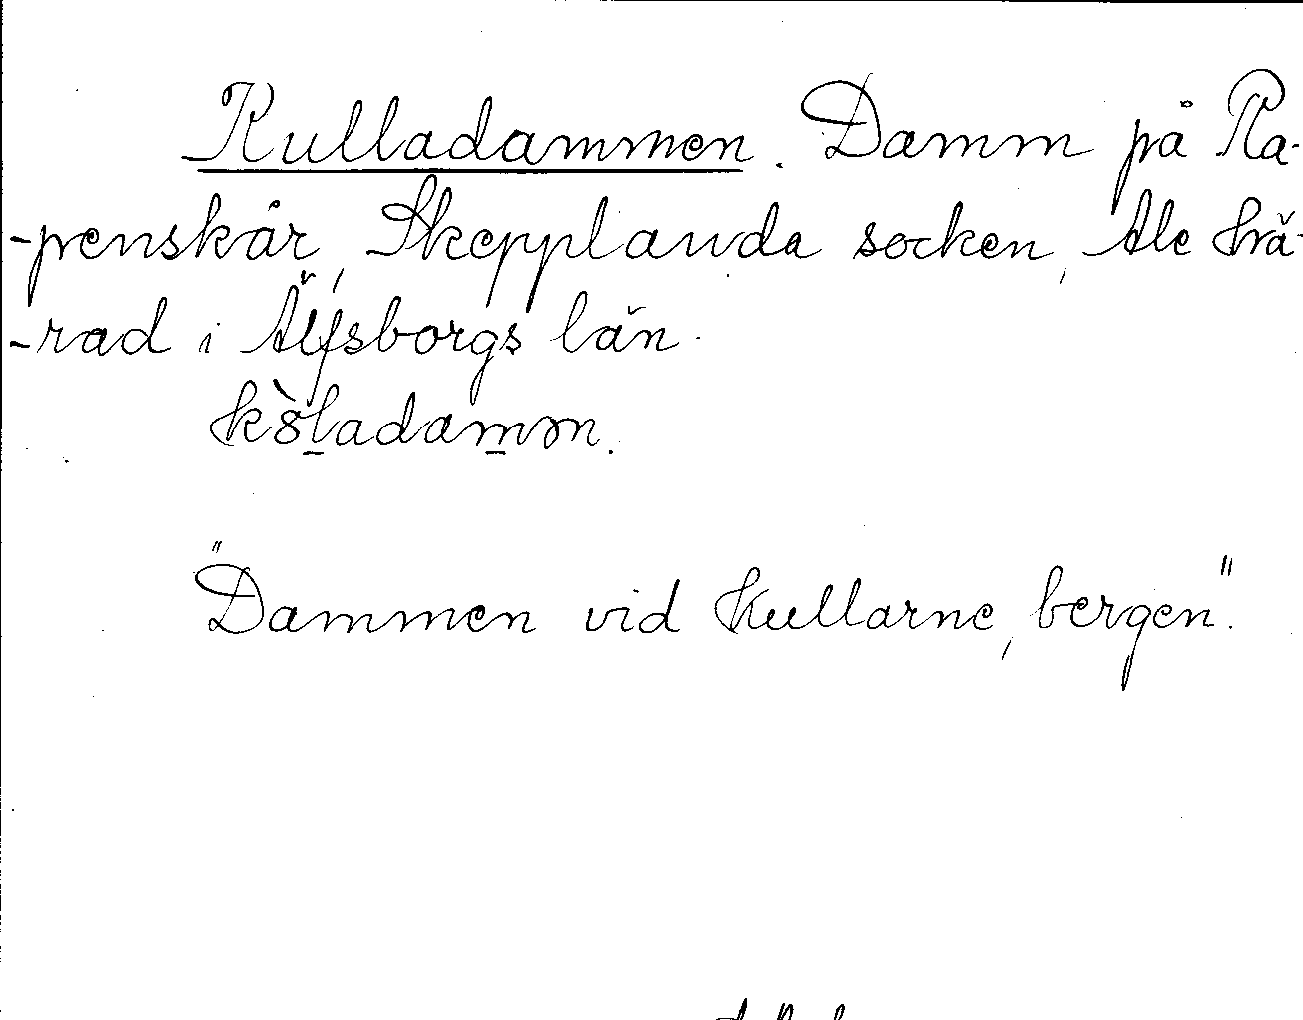 Kulladammen. Damm på Ra-
-penskår, Skepplanda socken, Ale hä-
-rad i Älfsborgs län.
"Dammen vid Kullarne, bergen".